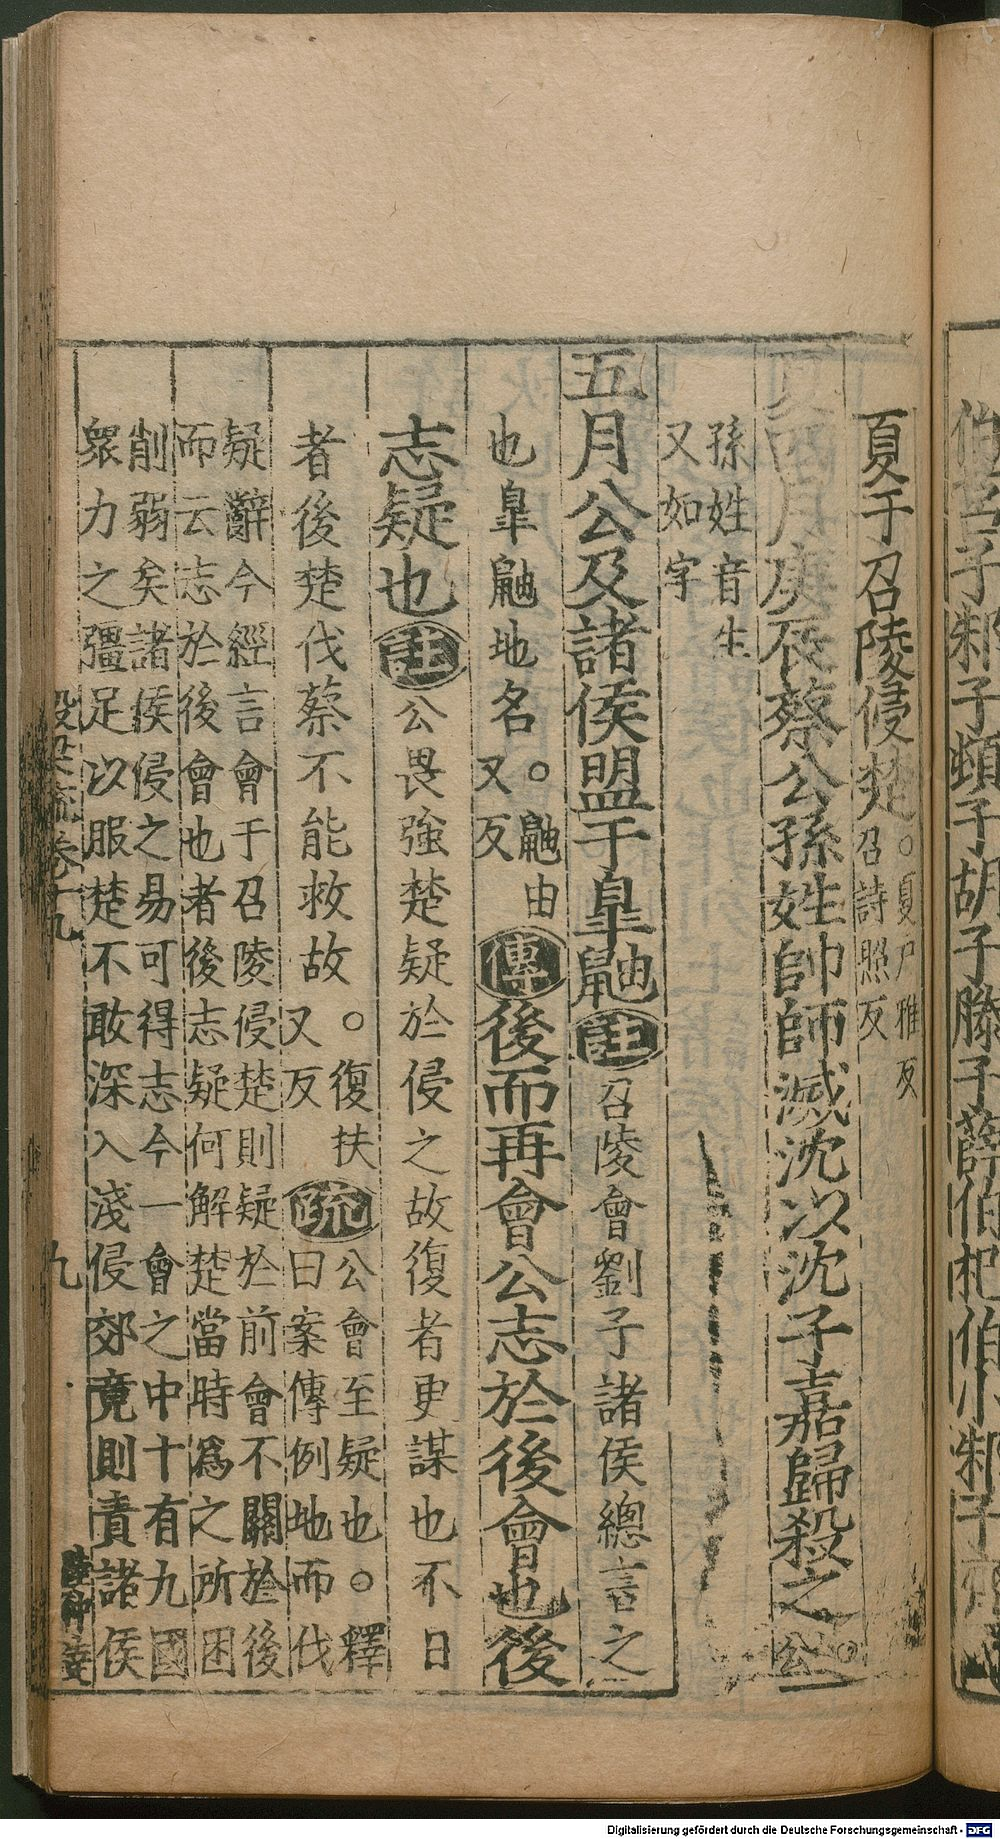 伯莒子邾子頓子胡子滕子薛伯杞伯小邾子
夏于召陵侵楚。夏戶雅反
召詩照反
夏四月庚辰蔡公孫姓帥師滅沈以沈子嘉歸殺之。公
孫姓音生
又如字
五月公及諸侯盟于皐鼬註召陵會劉子諸侯總言之
也皐鼬地名。鼬由
又反
傳後而再會公志於後會也後
志疑也註公畏強楚疑於侵之故復者更謀也不日
者後楚伐蔡不能救故。復扶
又反
疏公會至疑也。釋
曰案傳例地而伐
疑辭今經言會于召陵侵楚則疑於前會不關於後
而云志於後會也者後志疑何解楚當時爲之所困
削弱矣諸侯侵之易可得志今一會之中十有九國
衆力之彊足以服楚不敢深入淺侵郊竟則責諸侯
榖梁疏卷十九
九
陸仲達
Digitalisierung gefördert durch die Deutsche Forschungsgemeinschaft - DFG